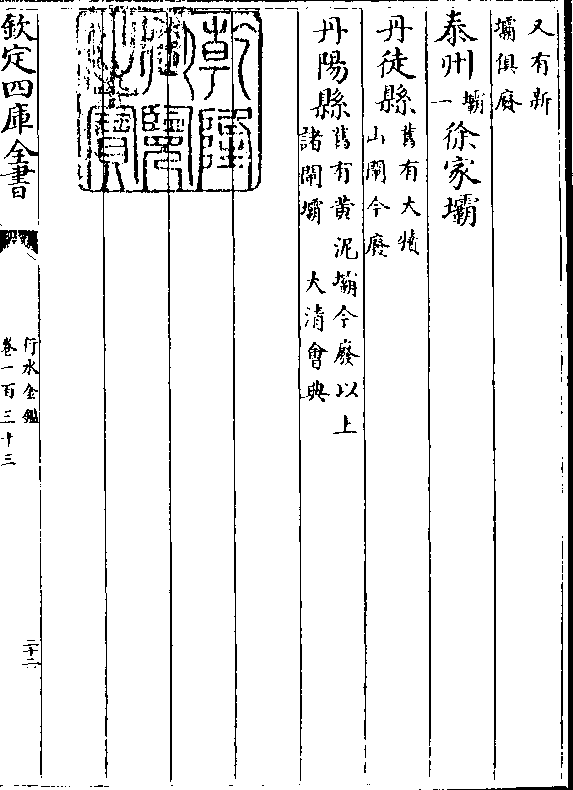 又有新
壩俱廢
泰州壩一徐家壩
丹徒縣舊有大犢
山閘今廢
丹陽縣舊有黄泥壩今廢以上
諸閘壩 大清會典
乾隆御覽之寶
欽定四庫全書
行水金鑑
卷一百三十三
二十二